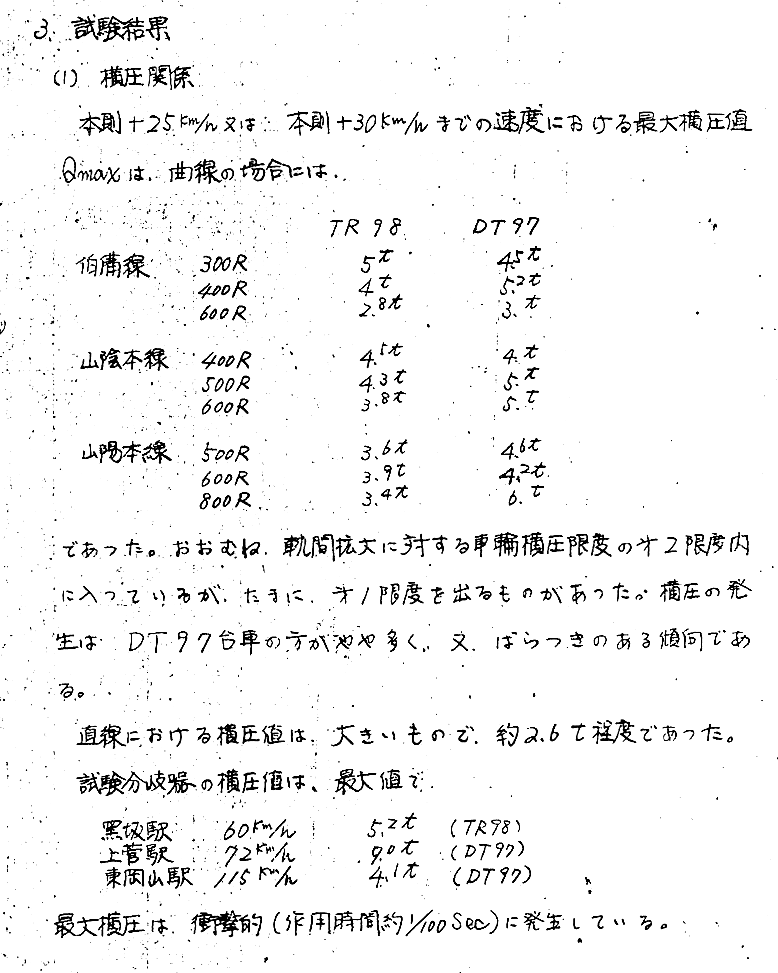 3. 試験結果
(1) 横圧関係
本則+25Km/h又は 本則+30Km/hまでの速度における最大横圧値
Qmaxは、曲線の場合には、
TR98 DT97
伯備線 300R 5t 4.5t
400R 4t 5.2t
600R 2.8t 3.t
山陰本線 400R 4.5t 4.t
500R 4.3t 5.t
600R 3.8t 5.t
山陽本線 500R 3.6t 4.6t
600R 3.9t 4.2t
800R 3.4t 6.t
であった。おおむね、軌間拡大に対する車輪横圧限度の才2限度内
に入っているが、たまに、才1限度を出るものがあった。横圧の発
生は DT97台車の方がやや多く、又、ばらつきのある傾向であ
る。
直線における横圧値は、大きいもので、約2.6t程度であった。
試験分岐器の横圧値は、最大値で
黒坂駅 60Km/h 5.2t (TR98)
上菅駅 72Km/h .0t (DT97)
東岡山駅 115Km/h 4.1t (DT97)
最大横圧は、衝撃的(作用時間約1/100Sec)に発生している。